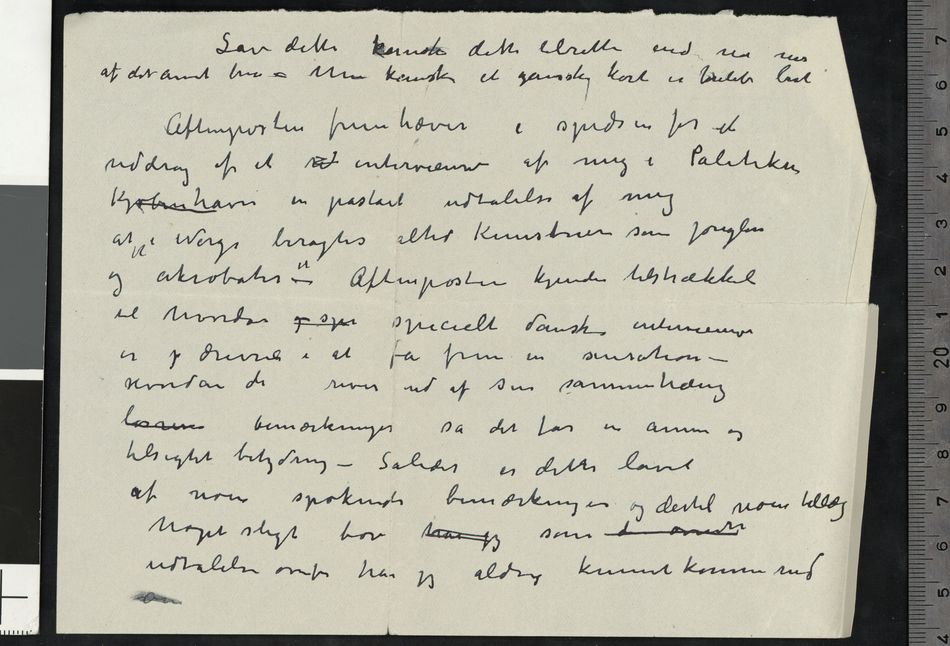 Lav dette kanske dette
af det andet bra – Men kanske et ganske kort er bedst
Aftenposten fremhæver i spidsen for et
uddrag af et intervieuw af mig i Politiken
Kjøbenhavn en pastaet udtalelse af mig
at "i Norge beragtes altid Kunstnere som jonglør
og akrobater" – Aftenposten kjender tilstrækkel
til hvordan specielt danske intervieuwer
er i at fa frem en sensation –
hvordan de river ud af sin sammenhæng
bemærkninger sa det far en annen og
tilsigtet betydning – Saledes er dette lavet
af noen spøkende bemærkninger og dertil noen tillæg
Noget sligt som
udtalelse ovenfor har jeg aldrig kunnet komme med